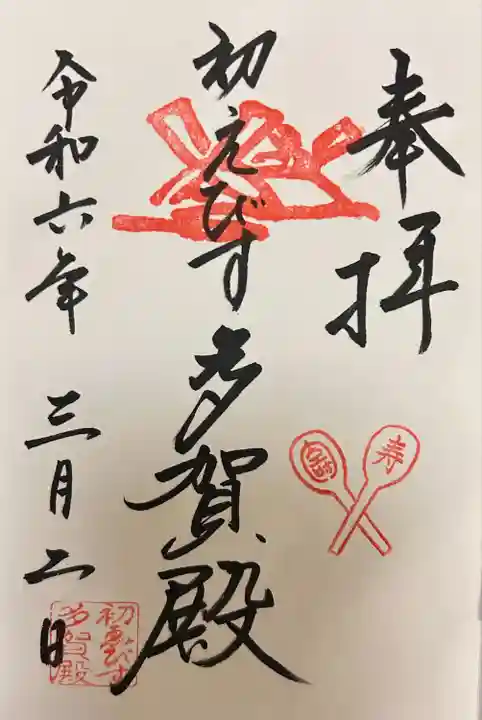 奉拝
初えびす
多賀殿
令和六年 三月二日
寿
初ゑびす
多賀殿